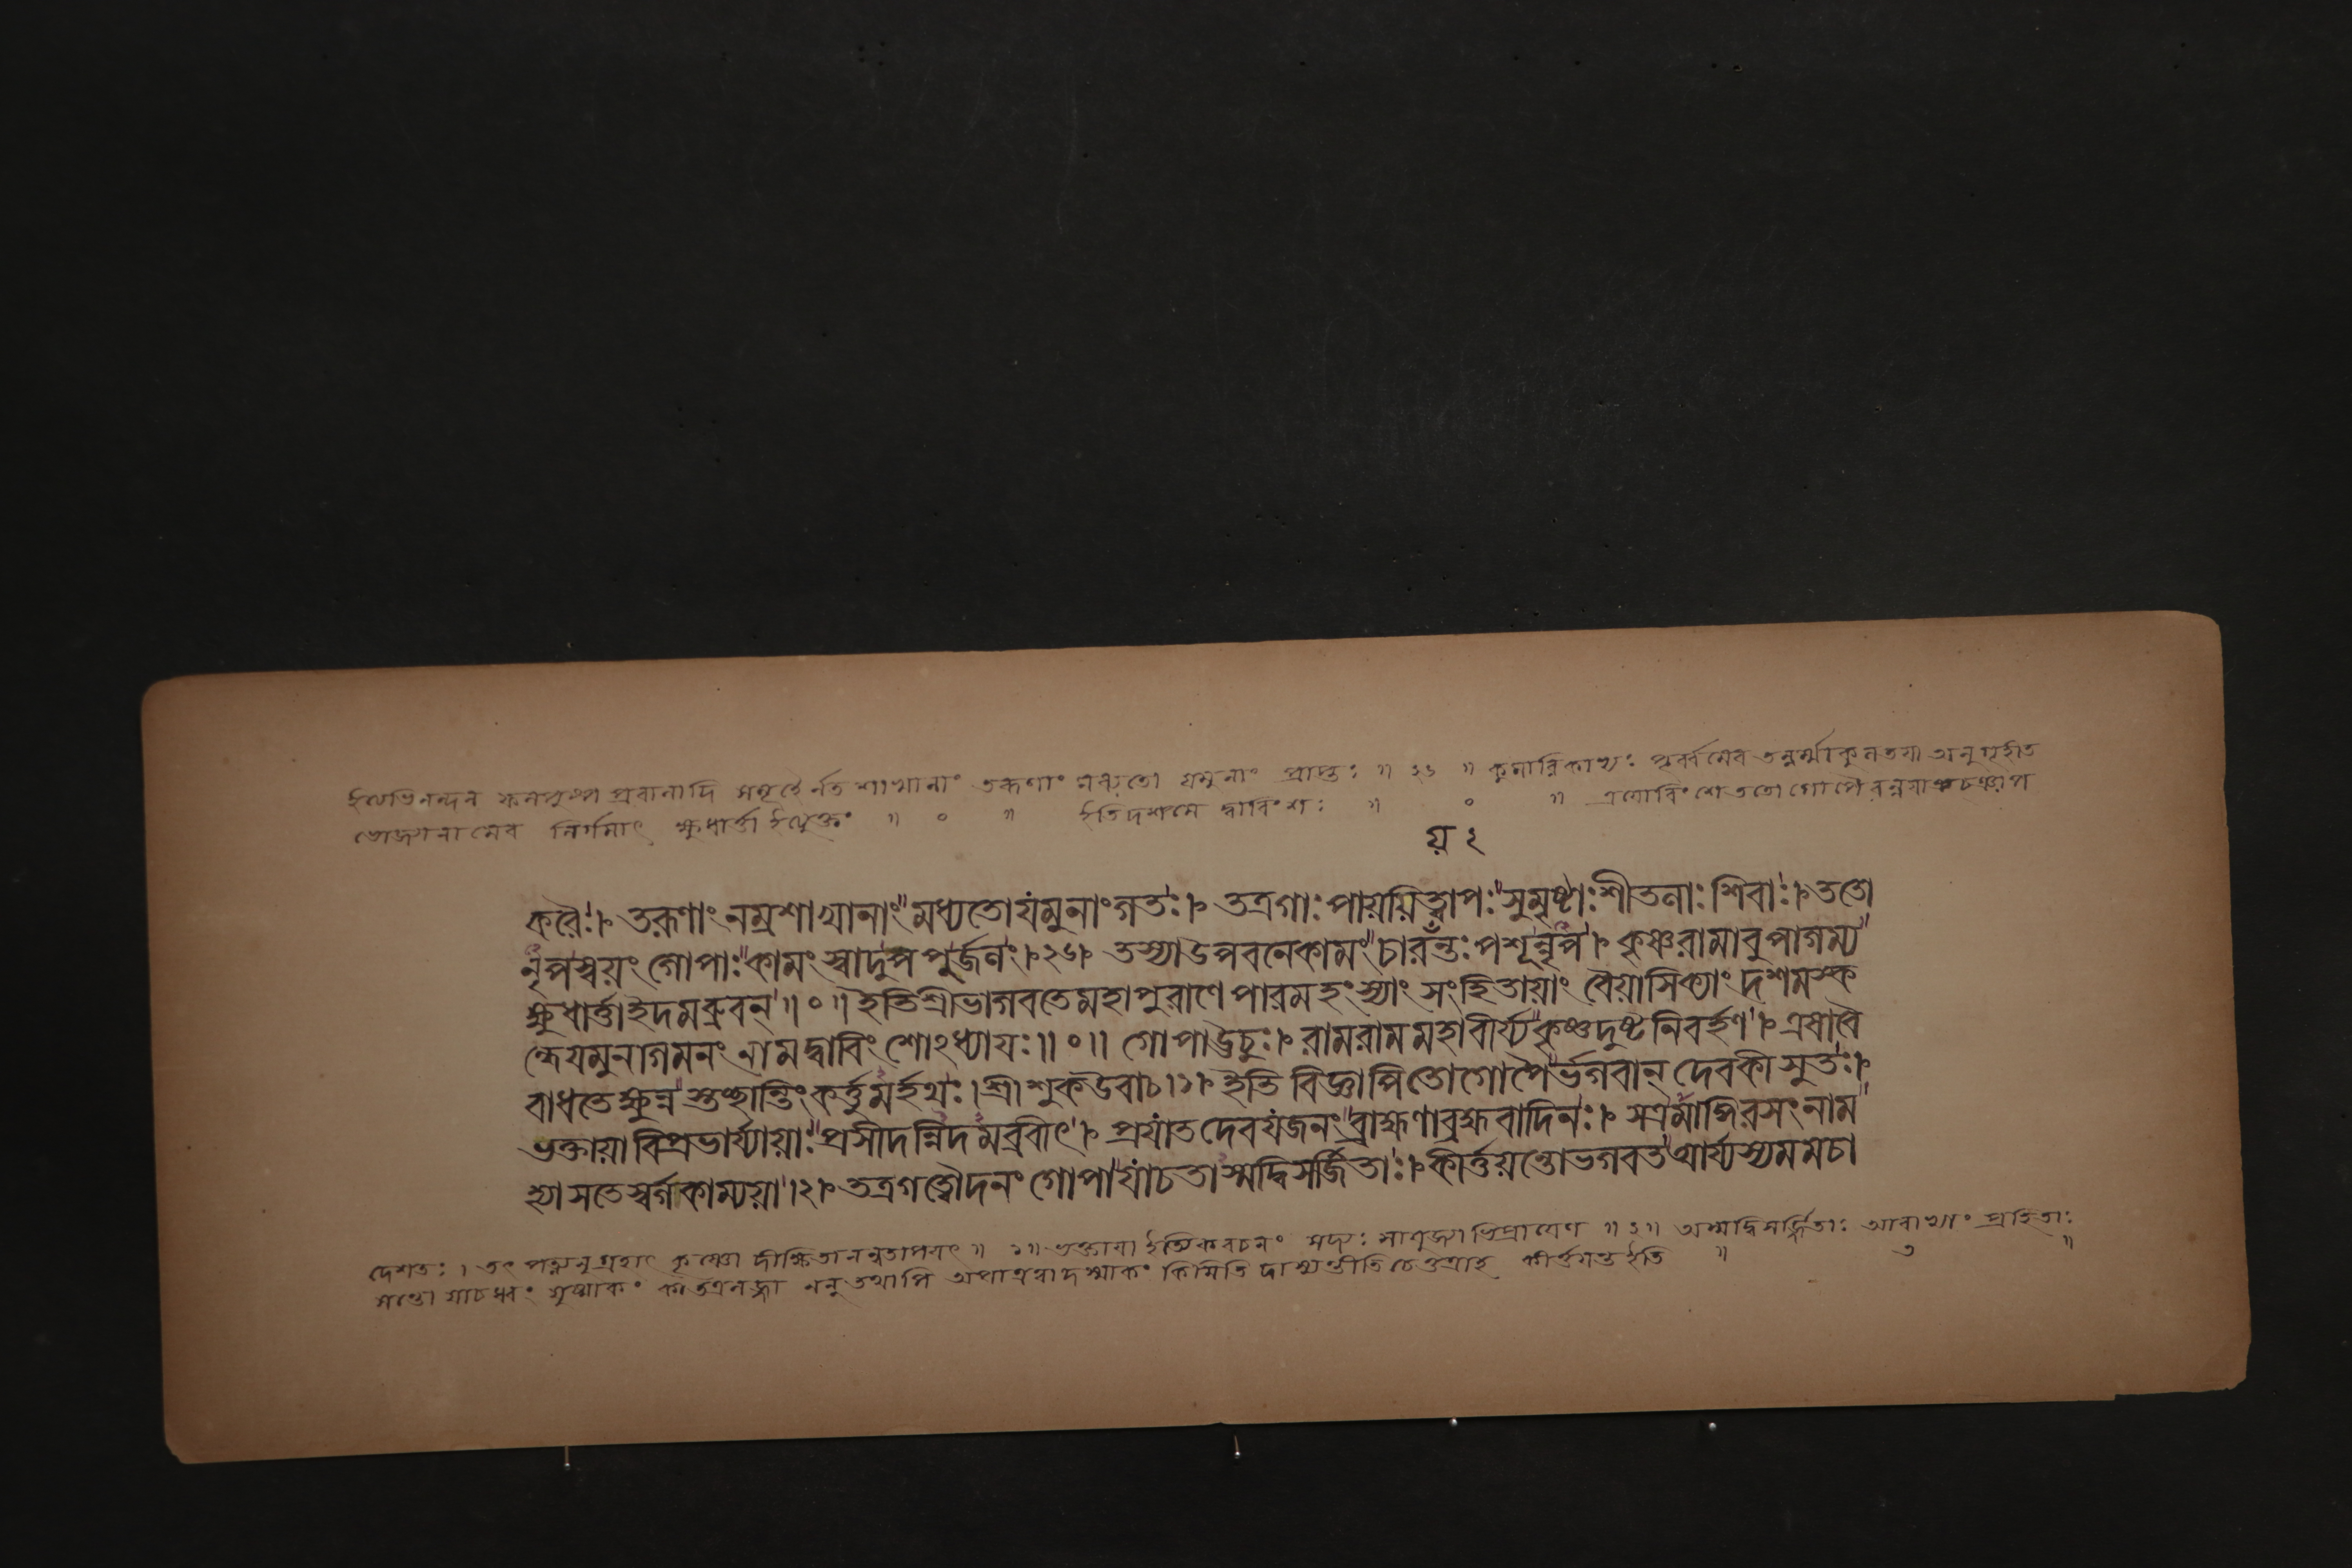 ইত্যভিনন্দন ফলপুষ্পপ্রবালাদি সমূহৈর্নতশাখানাং তরূণাং মধ্যতো যমুনাং প্রাপ্তঃ ॥ ২৬ ॥ পূর্ব্বমেব অনুগৃহীত
ভোজনানামেব নির্গমাৎ ক্ষুধার্ত্তা ইত্যুক্তং ॥ ০ ॥ ইতিদশমে দ্বাবিংশঃ ॥ ০ ॥ ত্রয়োবিংশে ততো গোপৈরন্নযাঞ্চা
য় ২
করৈঃ। তরূণাং নম্রশাখানাং মধ্যতোযমুনাংগতঃ। তত্রগাঃ পায়য়িত্বাপঃ সুমৃষ্টাঃ শীতলাঃ শিবাঃ। ততো
নৃপস্বয়ং গোপাঃ কামং স্বাদুপপুর্জলং।২৬। তস্যাউপবনেকামং চারয়ন্তঃ পশূন্নৃপ। কৃষ্ণরামাবুপাগম্য
ক্ষুধার্ত্তাইদমব্রুবন্॥০॥ইতিশ্রীভাগবতেমহাপুরাণে পারমহংস্যাং সংহিতায়াং বৈয়াসিক্যাং দশমস্ক
ন্ধেযমুনাগমনং নামদ্বাবিংশোঽধ্যায়ঃ॥০॥ গোপাঊচুঃ। রামরামমহাবীর্য্য কৃষ্ণদুষ্টনিবর্হণ। এষাবৈ
বাধতেক্ষুন্নস্তচ্ছান্তিং কর্ত্তুমর্হথঃ।শ্রীশুকউবাচ।১। ইতি বিজ্ঞাপিতোগোপৈর্ভগবান্ দেবকীসুতঃ।
ভক্তায়াবিপ্রভার্য্যায়াঃ প্রসীদন্নিদমব্রবীৎ। প্রয়াতদেবযজনং ব্রাহ্মণাব্রহ্মবাদিনঃ। সত্রমাঙ্গিরসংনাম
হ্যাসতেস্বর্গকাম্যয়া।২। তত্রগত্বৌদনং গোপাযাচতাস্মদ্বিসর্জিতাঃ।কীর্ত্তয়ন্তোভগবতআর্য্যস্যমমচা
দেশতঃ। তৎ পত্ন্যনুগ্রহাৎ কৃষ্ণো দীক্ষিতানন্বতাপয়ৎ ॥ ১॥ ভক্তায়া ইত্যেকবচনং সদ্যঃ সাযুজ্যাভিপ্রায়েণ ॥২॥ অস্মদ্বিসর্জ্জিতাঃ আবাভ্যাং প্রহিতাঃ
সন্তো যাচধ্বং যুষ্মাকং ননু তথাপি কিমিতি দাস্যন্তীতি চেত্তত্রাহ কীর্ত্তয়ন্ত ইতি ॥